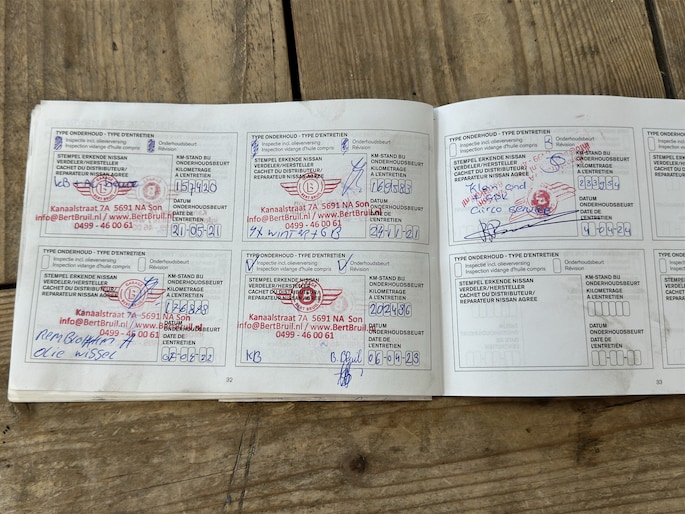 TYPE ONDERHOUD - TYPE D'ENTRETIEN
Inspectie incl. olieverversing
Inspection vidange d'huile compris
Onderhoudsbeurt
Révision
STEMPEL ERKENDE NISSAN
VERDELER/HERSTELLER
CACHET DU DISTRIBUTEUR/
REPARATEUR NISSAN AGREE
KM-STAND BIJ
ONDERHOUDSBEURT
KILOMETRAGE
A L'ENTRETIEN
157420
Kanaalstraat 7A 5691 NA Son
info@BertBruil.nl / www.BertBruil.nl
0499 - 46 00 61
DATUM
ONDERHOUDSBEURT
DATE DE
L'ENTRETIEN
21-05-21
TYPE ONDERHOUD - TYPE D'ENTRETIEN
Inspectie incl. olieverversing
Inspection vidange d'huile compris
Onderhoudsbeurt
Révision
STEMPEL ERKENDE NISSAN
VERDELER/HERSTELLER
CACHET DU DISTRIBUTEUR/
REPARATEUR NISSAN AGREE
KM-STAND BIJ
ONDERHOUDSBEURT
KILOMETRAGE
A L'ENTRETIEN
169583
Kanaalstraat 7A 5691 NA Son
info@BertBruil.nl / www.BertBruil.nl
0499 - 46 00 61
DATUM
ONDERHOUDSBEURT
DATE DE
L'ENTRETIEN
24-11-21
TYPE ONDERHOUD - TYPE D'ENTRETIEN
Inspectie incl. olieverversing
Inspection vidange d'huile compris
Onderhoudsbeurt
Révision
STEMPEL ERKENDE NISSAN
VERDELER/HERSTELLER
CACHET DU DISTRIBUTEUR/
REPARATEUR NISSAN AGREE
KM-STAND BIJ
ONDERHOUDSBEURT
KILOMETRAGE
A L'ENTRETIEN
Klein ond
DATUM
ONDERHOUDSBEURT
DATE DE
L'ENTRETIEN
TYPE ONDERHOUD - TYPE D'ENTRETIEN
Inspectie incl. olieverversing
Inspection vidange d'huile compris
Onderhoudsbeurt
Révision
STEMPEL ERKENDE NISSAN
VERDELER/HERSTELLER
CACHET DU DISTRIBUTEUR/
REPARATEUR NISSAN AGREE
KM-STAND BIJ
ONDERHOUDSBEURT
KILOMETRAGE
A L'ENTRETIEN
Kanaalstraat 7A 5691 NA Son
info@BertBruil.nl / www.BertBruil.nl
0499 - 46 00 61
olie wissel
DATUM
ONDERHOUDSBEURT
DATE DE
L'ENTRETIEN
TYPE ONDERHOUD - TYPE D'ENTRETIEN
Inspectie incl. olieverversing
Inspection vidange d'huile compris
Onderhoudsbeurt
Révision
STEMPEL ERKENDE NISSAN
VERDELER/HERSTELLER
CACHET DU DISTRIBUTEUR/
REPARATEUR NISSAN AGREE
KM-STAND BIJ
ONDERHOUDSBEURT
KILOMETRAGE
A L'ENTRETIEN
202496
Kanaalstraat 7A 5691 NA Son
info@BertBruil.nl / www.BertBruil.nl
0499 - 46 00 61
KB
B. Bruil
DATUM
ONDERHOUDSBEURT
DATE DE
L'ENTRETIEN
06-04-23
TYPE ONDERHOUD - TYPE D'ENTRETIEN
Inspectie incl. olieverversing
Inspection vidange d'huile compris
Onderhoudsbeurt
Révision
STEMPEL ERKENDE NISSAN
VERDELER/HERSTELLER
CACHET DU DISTRIBUTEUR/
REPARATEUR NISSAN AGREE
KM-STAND BIJ
ONDERHOUDSBEURT
KILOMETRAGE
A L'ENTRETIEN
DATUM
ONDERHOUDSBEURT
DATE DE
L'ENTRETIEN
32
33